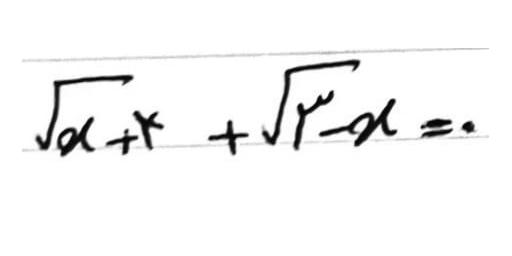 √x+۲ + √۳-x = ۰